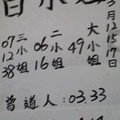 白小
月12 15 17日
大小姐
49
二小姐
06
16
三小姐
07
12
38
曾道人:03.33